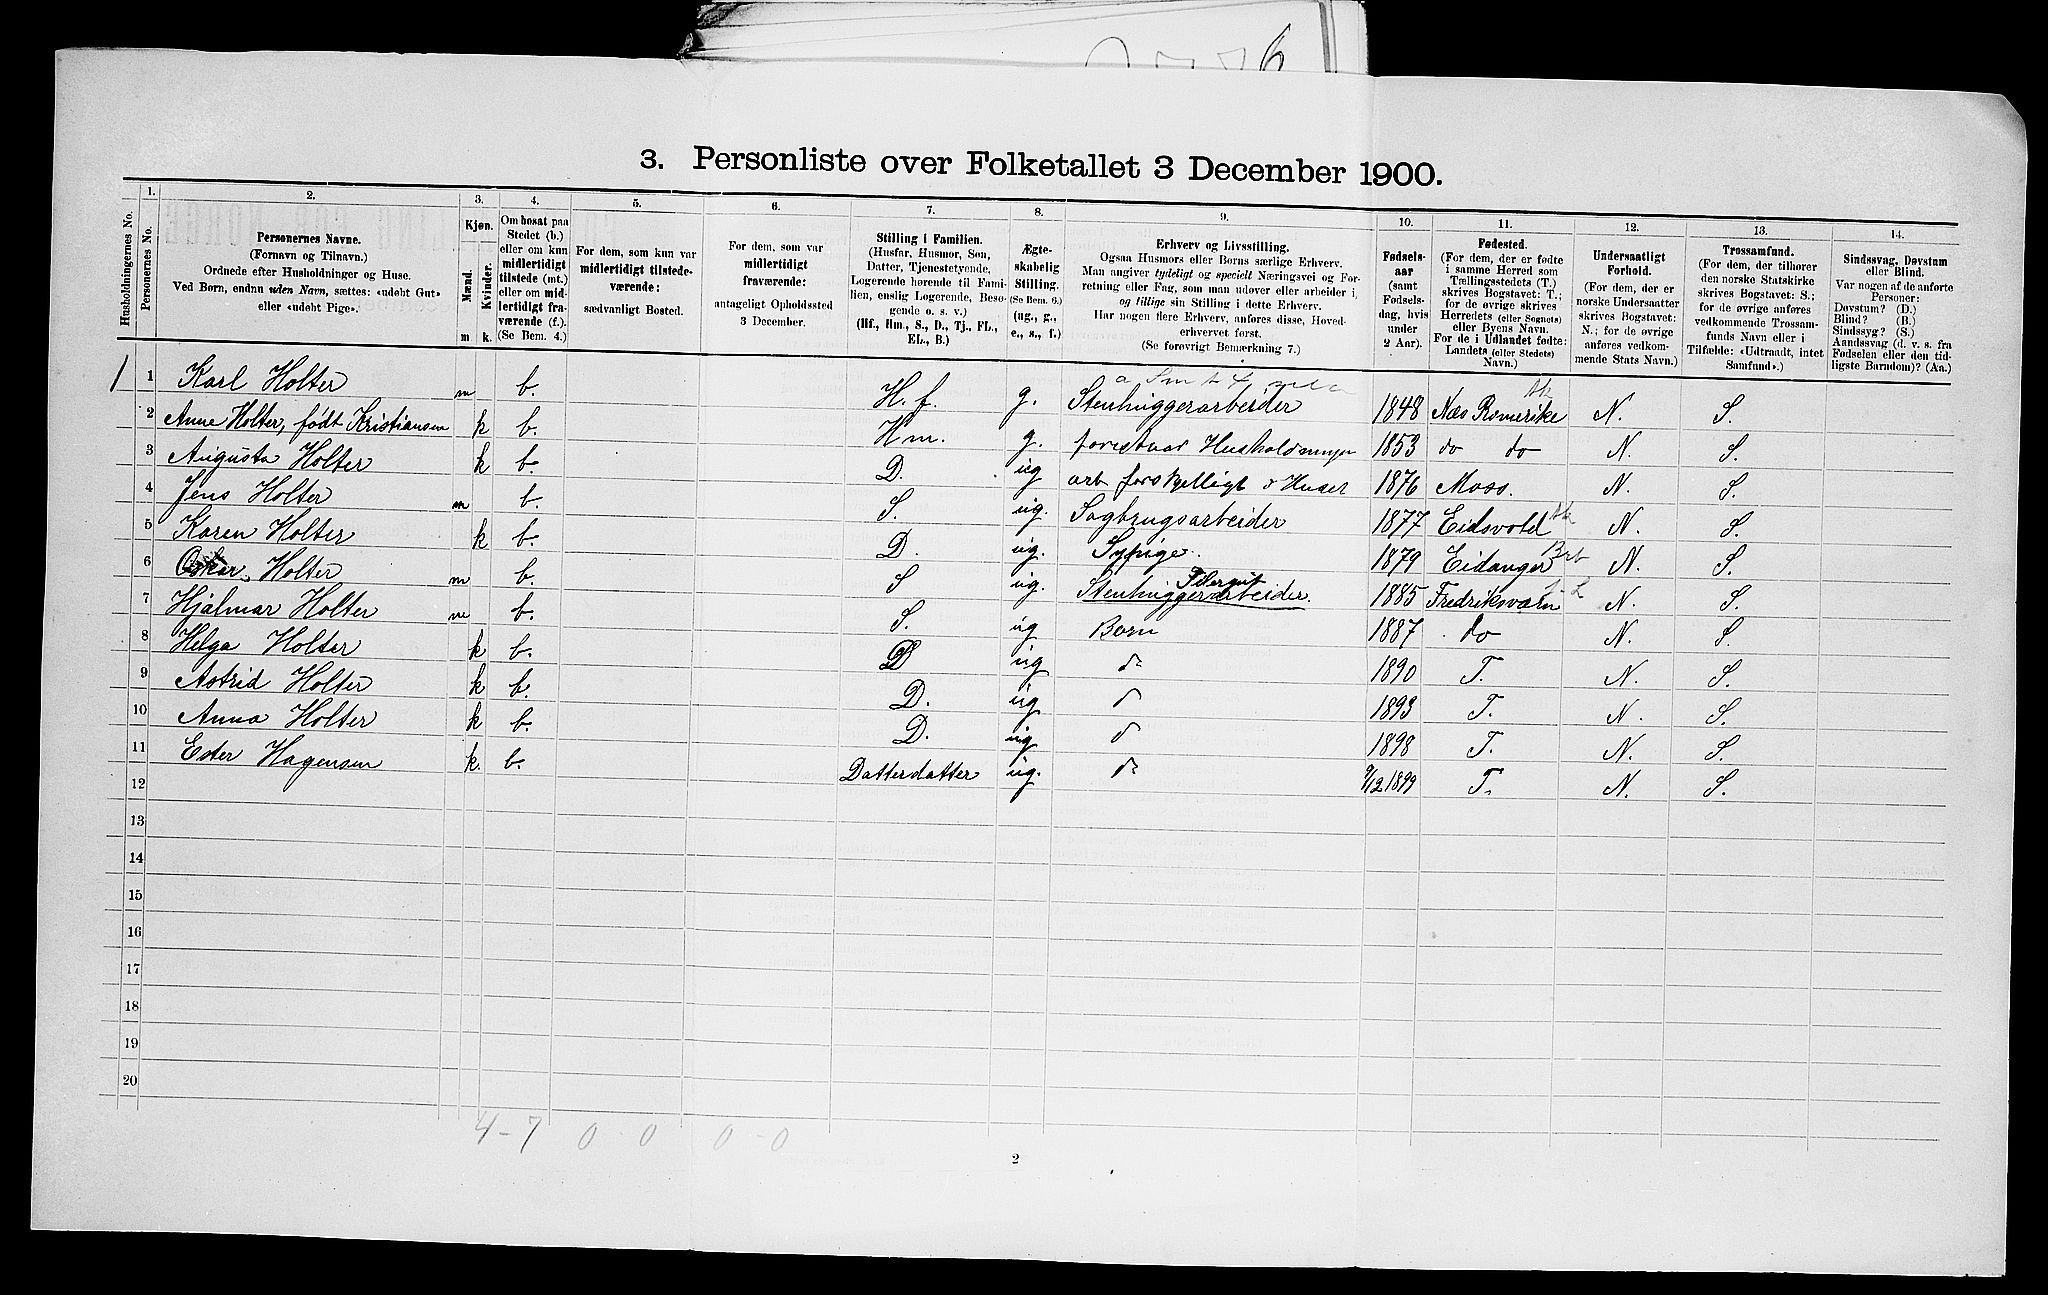 3. Personliste over Folketallet 3 December 1900.
Husholdningernes No.
1. Personernes No.
2. Personernes Navne. (Fornavn og Tilnavn.) Ordnede efter Husholdninger og Huse. Ved Børn, endnu uden Navn, sættes: «udøbt Gut» eller «udøbt Pige».
3. Kjøn. Mænd. Kvinder. m k.
4. Om bosat paa Stedet (b.) eller om kun midlertidigt tilstede (mt.) eller om midlertidigt fraværende (f.). (Se Bem. 4.)
5. For dem, som kun var midlertidigt tilstedeværende: sædvanligt Bosted.
6. For dem, som var midlertidigt fraværende: antageligt Opholdssted 3 December.
7. Stilling i Familien. (Husfar, Husmor, Søn, Datter, Tjenestetyende, Logerende hørende til Familien, enslig Logerende, Besøgende o. s. v.) (Hf., Hm., S., D., Tj., FL., EL., B.)
8. Ægteskabelig Stilling. (Se Bem. 6.) (ug., g., e., s., f.)
9. Erhverv og Livsstilling. Ogsaa Husmors eller Børns særlige Erhverv. Man angiver tydeligt og specielt Næringsvei og Forretning eller Fag, som man udøver eller arbeider i, og tillige sin Stilling i dette Erhverv. Har nogen flere Erhverv, anføres disse, Hovederhvervet først. (Se forøvrigt Bemærkning 7.)
10. Fødselsaar (samt Fødselsdag, hvis under 2 Aar).
11. Fødested. (For dem, der er fødte i samme Herred som Tællingsstedets (T.) skrives Bogstavet: T.; for de øvrige skrives Herredets (eller Sognets) eller Byens Navn. For de i Udlandet fødte: Landets (eller Stedets) Navn.)
12. Undersaatligt Forhold. (For dem, der er norske Undersaatter skrives Bogstavet: N.; for de øvrige anføres vedkommende Stats Navn.)
13. Trossamfund. (For dem, der tilhører den norske Statskirke skrives Bogstavet: S.; for de øvrige anføres vedkommende Trossamfunds Navn eller i Tilfælde: «Udtraadt, intet Samfund».)
14. Sindssvag, Døvstum eller Blind. Var nogen af de anførte Personer: Døvstum? (D.) Blind? (B.) Sindssyg? (S.) Aandssvag (d. v. s. fra Fødselen eller den tidligste Barndom)? (Aa.)
1 1 Karl Holter m b. H. f. g. Stenhuggerarbeider 1848 Næs Romerike Ak N. S.
2 Anne Holter, født Kristiansen k b. Hm. g. forestaar Husholdningen 1853 do do N. S.
3 Augusta Holter k b. D. ug arb forskjelligt i Huset 1876 Moss. N. S.
4 Jens Holter m b. S. ug. Sagbrugsarbeider 1877 Eidsvold Ak N. S.
5 Karen Holter k b. D. ug. Sypige. 1879 Eidanger Brb N. S.
6 Oskar Holter m b. S ug. Stenhuggerarbeider. 1885 Fredriksværn N. S.
7 Hjalmar Holter m b. S. ug Barn 1887 do N. S.
8 Helga Holter k b. D ug do 1890 T. N. S.
9 Astrid Holter k b. D. ug d 1893 T. N. S.
10 Anna Holter k b. D. ug d 1898 T. N. S.
11 Ester Hagensen k. b. Datterdatter ug. do 9/12 1899 T. N. S.
12
13
14
15
16
17
18
19
20
4-7 0-0 0-0
2